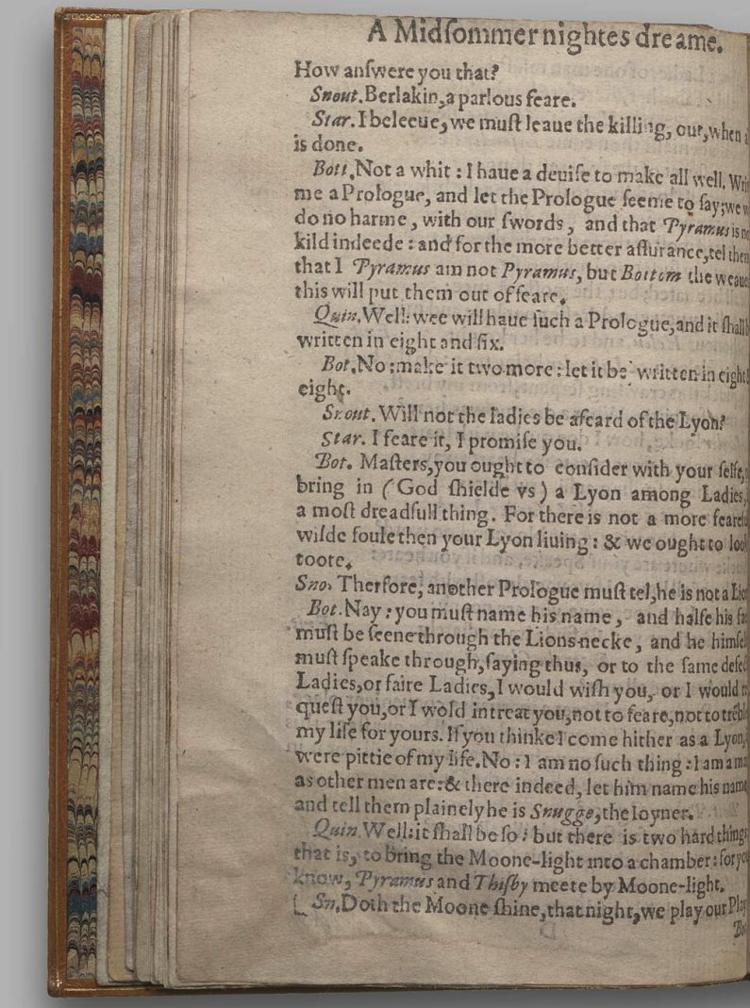 A Midſommer nightes dreame.
How anſwere you that?
Snout. Berlakin, a parlous feare.
Star. I beleeue, we muſt leaue the killing, out, when
is done.
Bott. Not a whit: I haue a deuiſe to make all well.
me a Prologue, and let the Prologue ſeeme to ſay; we
do no harme, with our ſwords, and that Pyramus is
kild indeede: and for the more better aſſurance, tel them
that I Pyramus am not Pyramus, but Bottom the
this will put them out of feare.
Quin. Well: wee will haue ſuch a Prologue, and it ſhall
written in eight and ſix.
Bot. No: make it two more: let it be written in eight
eight.
Snout. Will not the ladies be afeard of the Lyon?
Star. I feare it, I promiſe you.
Bot. Maſters, you ought to conſider with your ſelfe,
bring in (God ſhielde vs) a Lyon among Ladies,
a moſt dreadfull thing. For there is not a more
wilde foule then your Lyon liuing: & we ought to
toote.
Sno. Therfore, another Prologue muſt tel, he is not a
Bot. Nay: you muſt name his name, and halfe his
muſt be ſeene through the Lions necke, and he
muſt ſpeake through, ſaying thus, or to the ſame
Ladies, or faire Ladies, I would wiſh you, or I would
queſt you, or I wold intreat you, not to feare, not to
my life for yours. If you thinke I come hither as a Lyon,
were pittie of my life. No: I am no ſuch thing: I am a
as other men are: & there indeed, let him name his name,
and tell them plainely he is Snugge, the Ioyner.
Quin. Well: it ſhall be ſo: but there is two hard things,
that is, to bring the Moone-light into a chamber: for
know, Pyramus and Thiſby meete by Moone-light.
Sn. Doth the Moone ſhine, that night, we play our